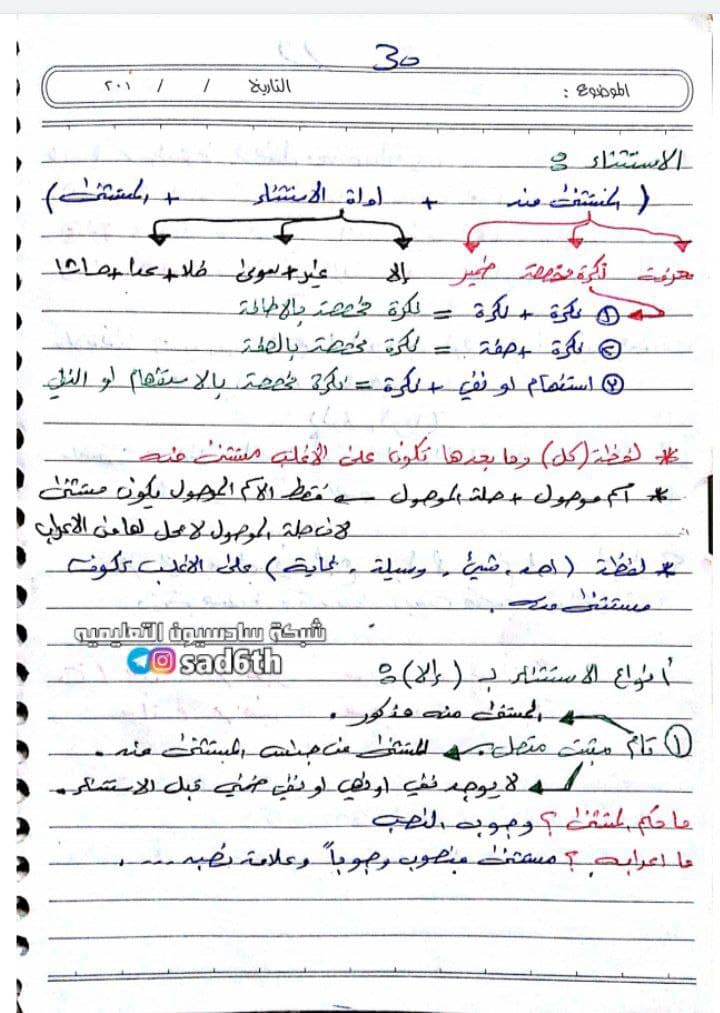 30
الموضوع : التاريخ / / ٢٠١
الاستثناء :
( المستثنى منه + اداة الاستثناء + المستثنى )
معرفة نكرة مخصصة ضمير إلا غير + سوى خلا + عدا + حاشا
① نكرة + نكرة = نكرة مخصصة بالاضافة
② نكرة + صفة = نكرة مخصصة بالصفة
③ استفهام او نفي + نكرة = نكرة مخصصة بالاستفهام او النفي
* لفظة (كل) وما بعدها تكون على الاغلب مستثنى منه
* اسم موصول + صلة الموصول ← فقط الاسم الموصول يكون مستثنى
لان صلة الموصول لا محل لها من الاعراب
* لفظة ( احد ، شيئ ، وسيلة ، غاية ) على الاغلب تكون
مستثنى منه .
شبكة سادسيون التعليميه
sad6th
أنواع الاستثناء بـ ( إلا ) :
المستثنى منه مذكور .
① تام مثبت متصل . المستثنى من جنس المستثنى منه .
لا يوجد نفي او نهي او نفي ضمني قبل الاستثناء .
ما حكم المستثنى ؟ وجوب النصب
ما اعرابه ؟ مستثنى منصوب وجوباً وعلامة نصبه ....